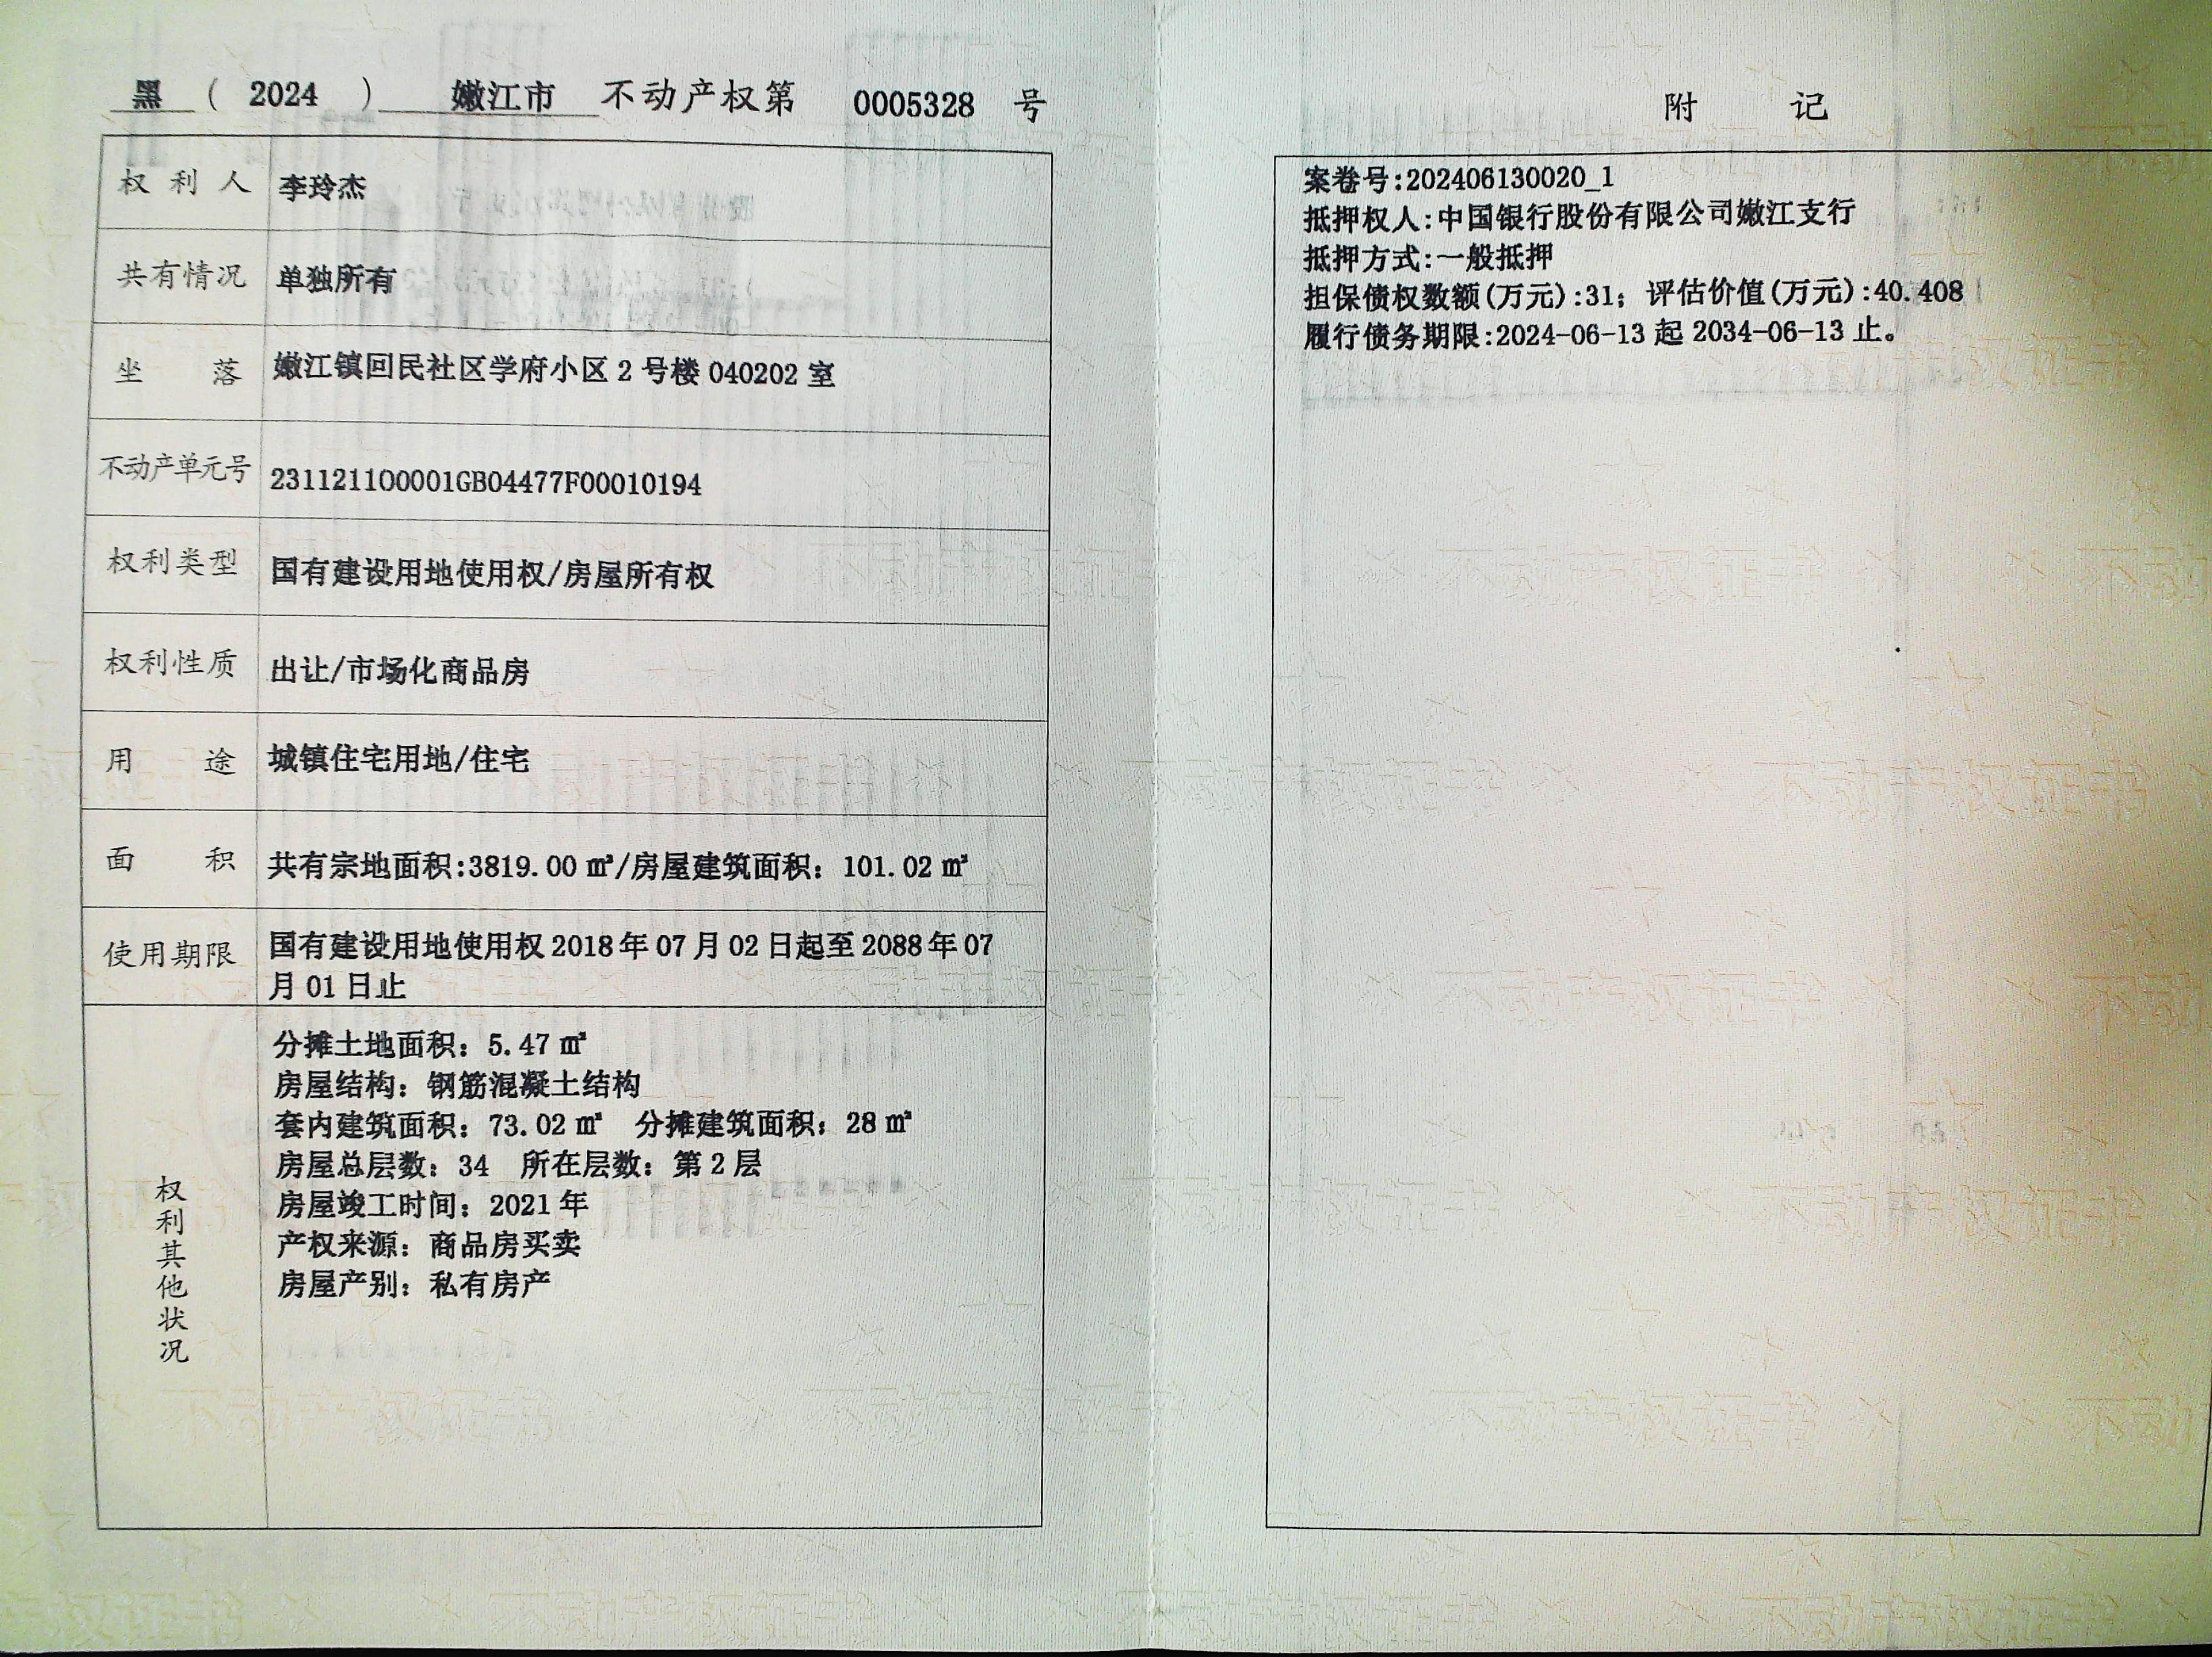 黑 ( 2024 ) 嫩江市 不动产权第 0005328 号
权利人 李玲杰
共有情况 单独所有
坐落 嫩江镇回民社区学府小区 2 号楼 040202 室
不动产单元号 231121100001GB04477F00010194
权利类型 国有建设用地使用权/房屋所有权
权利性质 出让/市场化商品房
用途 城镇住宅用地/住宅
面积 共有宗地面积:3819.00 ㎡/房屋建筑面积：101.02 ㎡
使用期限 国有建设用地使用权 2018 年 07 月 02 日起至 2088 年 07
月 01 日止
权利其他状况
分摊土地面积：5.47 ㎡
房屋结构：钢筋混凝土结构
套内建筑面积：73.02 ㎡ 分摊建筑面积：28 ㎡
房屋总层数：34 所在层数：第 2 层
房屋竣工时间：2021 年
产权来源：商品房买卖
房屋产别：私有房产
附记
案卷号:202406130020_1
抵押权人:中国银行股份有限公司嫩江支行
抵押方式:一般抵押
担保债权数额(万元):31；评估价值(万元):40.408
履行债务期限:2024-06-13 起 2034-06-13 止。